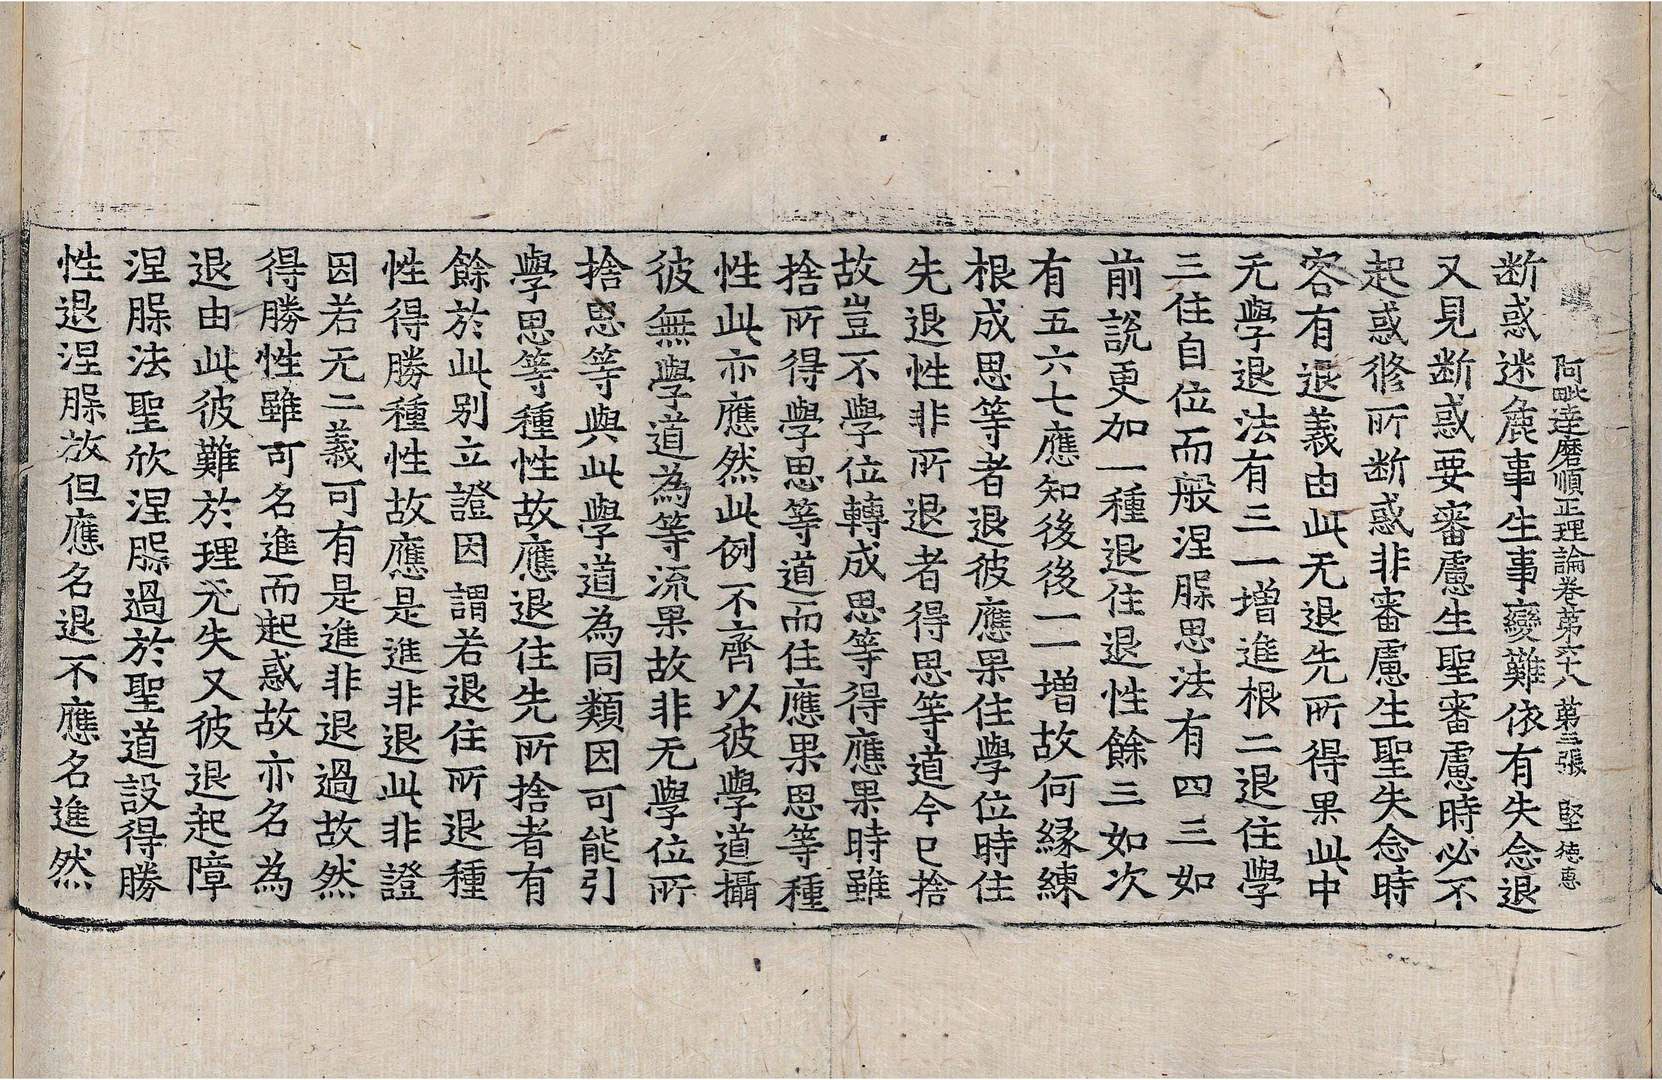 阿毗達磨順正理論卷第六十八　第三張　堅　德惠
断惑迷麁事生事變難依有失念退
又見断惑要審慮生聖審慮時必不
起惑修所断惑非審慮生聖失念時
容有退義由此无退先所得果此中
无學退法有三一增進根二退住學
三住自位而般涅槃思法有四三如
前說更加一種退住退性餘三如次
有五六七應知後後一一增故何縁練
根成思等者退彼應果住學位時住
先退性非所退者得思等道今已捨
故豈不學位轉成思等得應果時雖
捨所得學思等道而住應果思等種
性此亦應然此例不齊以彼學道攝
彼無學道為等流果故非无學位所
捨思等與此學道為同類因可能引
學思等種性故應退住先所捨者有
餘於此别立證因謂若退住所退種
性得勝種性故應是進非退此非證
因若无二義可有是進非退過故然
得勝性雖可名進而起惑故亦名為
退由此彼難於理无失又彼退起障
涅槃法聖欣涅槃過於聖道設得勝
性退涅槃故但應名退不應名進然